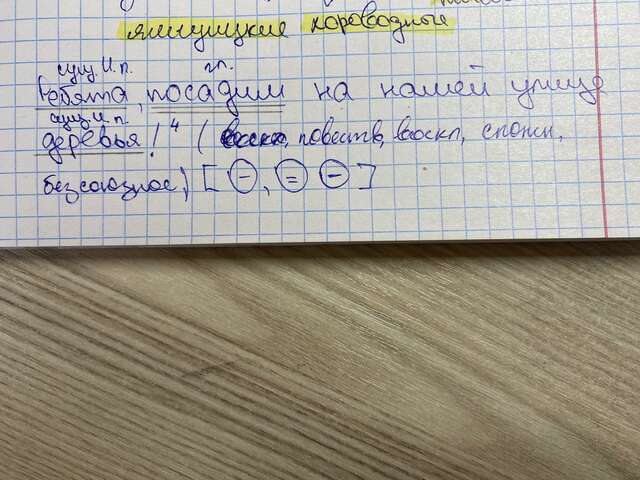 хороводные
сущ. И. п. гл.
Ребята, посадим на нашей улице
сущ. И. п.
деревья!⁴ ( повеств, воскл, сложн,
безсоюзное, [ (–), (=) (–) ]